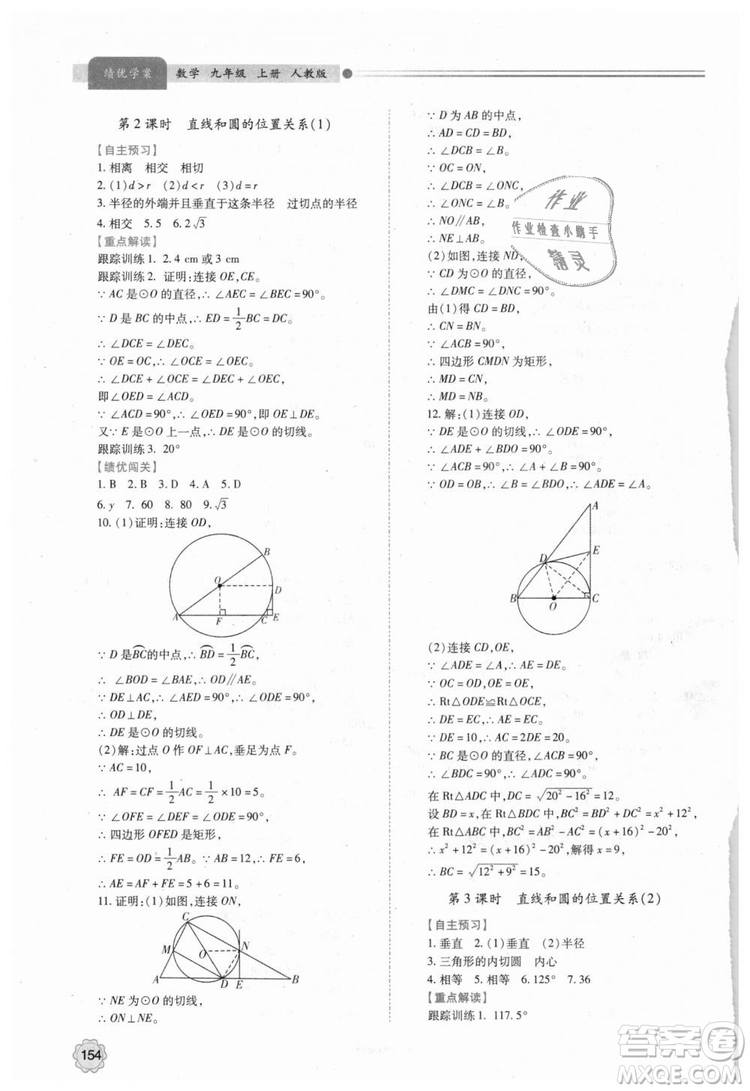 绩优学案 数学 九年级 上册 人教版
第2课时 直线和圆的位置关系(1)
【自主预习】
1. 相离 相交 相切
2. (1)d>r (2)d<r (3)d=r
3. 半径的外端并且垂直于这条半径 过切点的半径
4. 相交 5. 5 6. 2√3
【重点解读】
跟踪训练1. 2.4 cm或3 cm
跟踪训练2. 证明:连接OE,CE.
∵ AC是⊙O的直径,∴ ∠AEC=∠BEC=90°.
∵ D是BC的中点,∴ ED=1/2CB=DC.
∴ ∠DCE=∠DEC.
∵ OE=OC,∴ ∠OCE=∠OEC.
∴ ∠DCE+∠OCE=∠DEC+∠OEC,
即∠OED=∠ACD.
∵ ∠ACD=90°,∴ ∠OED=90°,即OE⊥DE.
又∵ E是⊙O上一点,∴ DE是⊙O的切线.
跟踪训练3. 20°
【绩优闯关】
1. B 2. B 3. D 4. A 5. D
6. y 7. 60 8. 80 9. √3
10. (1)证明:连接OD,
B
O
D
A
F
C
E
∵ D是BC的中点,∴ BD=1/2BC,
∴ ∠BOD=∠BAE,∴ OD∥AE.
∵ DE⊥AC,∴ ∠AED=90°.
∴ OD⊥DE.
∴ DE是⊙O的切线.
(2)解:过点O作OF⊥AC,垂足为点F.
∵ AC=10,
∴ AF=CF=1/2AC=1/2×10=5.
∵ ∠OFE=∠DEF=∠ODE=90°,
∴ 四边形OFED是矩形,
∴ FE=OD=1/2AB. ∵ AB=12,∴ FE=6.
∴ AE=AF+FE=5+6=11.
11. 证明:(1)如图,连接ON,
C
M
O
N
A
D
E
B
∵ NE为⊙O的切线,
∴ ON⊥NE.
154
∵ D为AB的中点,
∴ AD=CD=BD.
∴ ∠DCB=∠DBC.
∵ OC=ON,
∴ ∠DCB=∠ONC.
∴ ∠ONC=∠DBC.
∴ NO∥AB.
∴ NE⊥AB.
(2)如图,连接DN,
∵ CD为⊙O的直径,
∴ ∠CMD=∠CND=90°.
由(1)得CD=BD,
∴ CN=BN.
∵ ∠ACB=90°,
∴ 四边形CMDN为矩形,
∴ MD=CN,
∴ MD=NB.
12. 解:(1)连接OD,
∵ DE是⊙O的切线,∴ ∠ODE=90°,
∴ ∠ADE+∠BDO=90°.
∵ ∠ACB=90°,∴ ∠A+∠B=90°.
∵ OD=OB,∴ ∠B=∠BDO.
∴ ∠ADE=∠A.
A
D
E
B
O
C
(2)连接CD,OE,
∵ ∠ADE=∠A,
∴ AE=DE.
∴ Rt△ODE≌Rt△OCE.
∴ DE=EC,∴ AE=EC.
∵ DE=10,∴ AC=2DE=20.
∵ BC是⊙O的直径,
∴ ∠BDC=90°,∴ ∠ADC=90°.
在Rt△ADC中,DC=√20²-16²=12.
设BD=x,在Rt△BDC中,BC²=BD²+DC²=x²+12²,
在Rt△ABC中,BC²=AB²-AC²=(x+16)²-20²,
∴ x²+12²=(x+16)²-20²,解得x=9,
∴ BC=√12²+9²=15.
第3课时 直线和圆的位置关系(2)
【自主预习】
1. 垂直 2. (1)垂直 (2)半径
3. 三角形的内切圆 内心
4. 相等 5. 相等 6. 125° 7. 36
【重点解读】
跟踪训练1. 117.5°
作业
作业检查小助手
精灵
答案圈
MXQE.COM